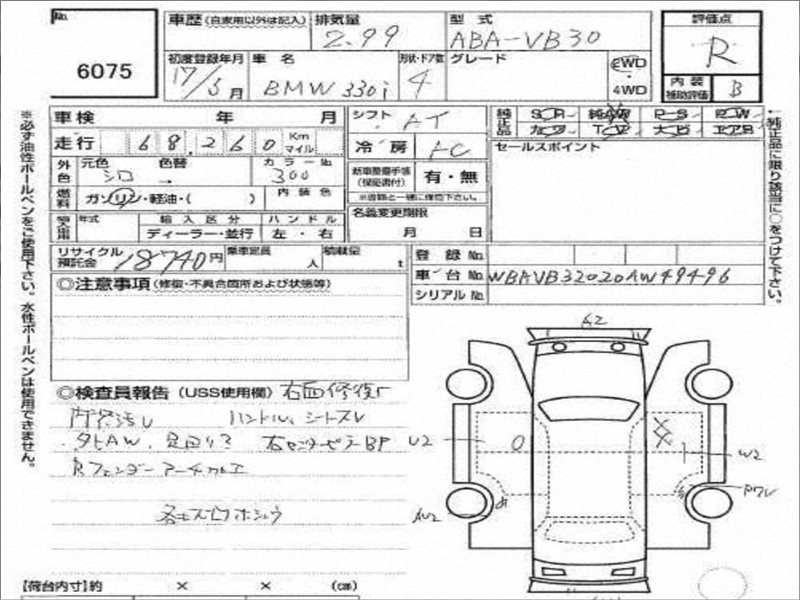 No.
6075
車歴 (自家用以外は記入)
排気量
2.99
型式
ABA-VB30
評価点
R
初度登録年月
17/5月
車名
BMW 330i
形状・ドア数
4
グレード
2WD
4WD
内装補助評価
B
車検 年 月
シフト AT
純正品
SR 純AW PS PW
カワ TV ナビ エアB
走行 68,260 Km マイル
冷房 AC
セールスポイント
外色 元色 シロ 色替
カラーNo. 300
新車整備手帳(保証書付) 有・無
※書類と一緒に保管下さい。
燃料 ガソリン・軽油・( )
内装色
名義変更期限
月 日
年式
輸入区分
ディーラー・並行
ハンドル
左・右
リサイクル預託金 18740円
乗車定員 人
積載量 t
登録No.
車台No. WBAVB32020AW49496
シリアルNo.
◎注意事項 (修復・不具合箇所および状態等)
◎検査員報告 (USS使用欄) 右面修復
内装汚レ ハンドル、シートスレ
タヒAW、足回リ? 右センターピラーBP
Rフェンダーアーチカルエ
各エスプロホシュウ
A2
U2
W2
AU2
【荷台内寸】約 × × (cm)
※必ず油性ボールペンをご使用下さい。水性ボールペンは使用できません。
純正品に限り該当に○をつけて下さい。